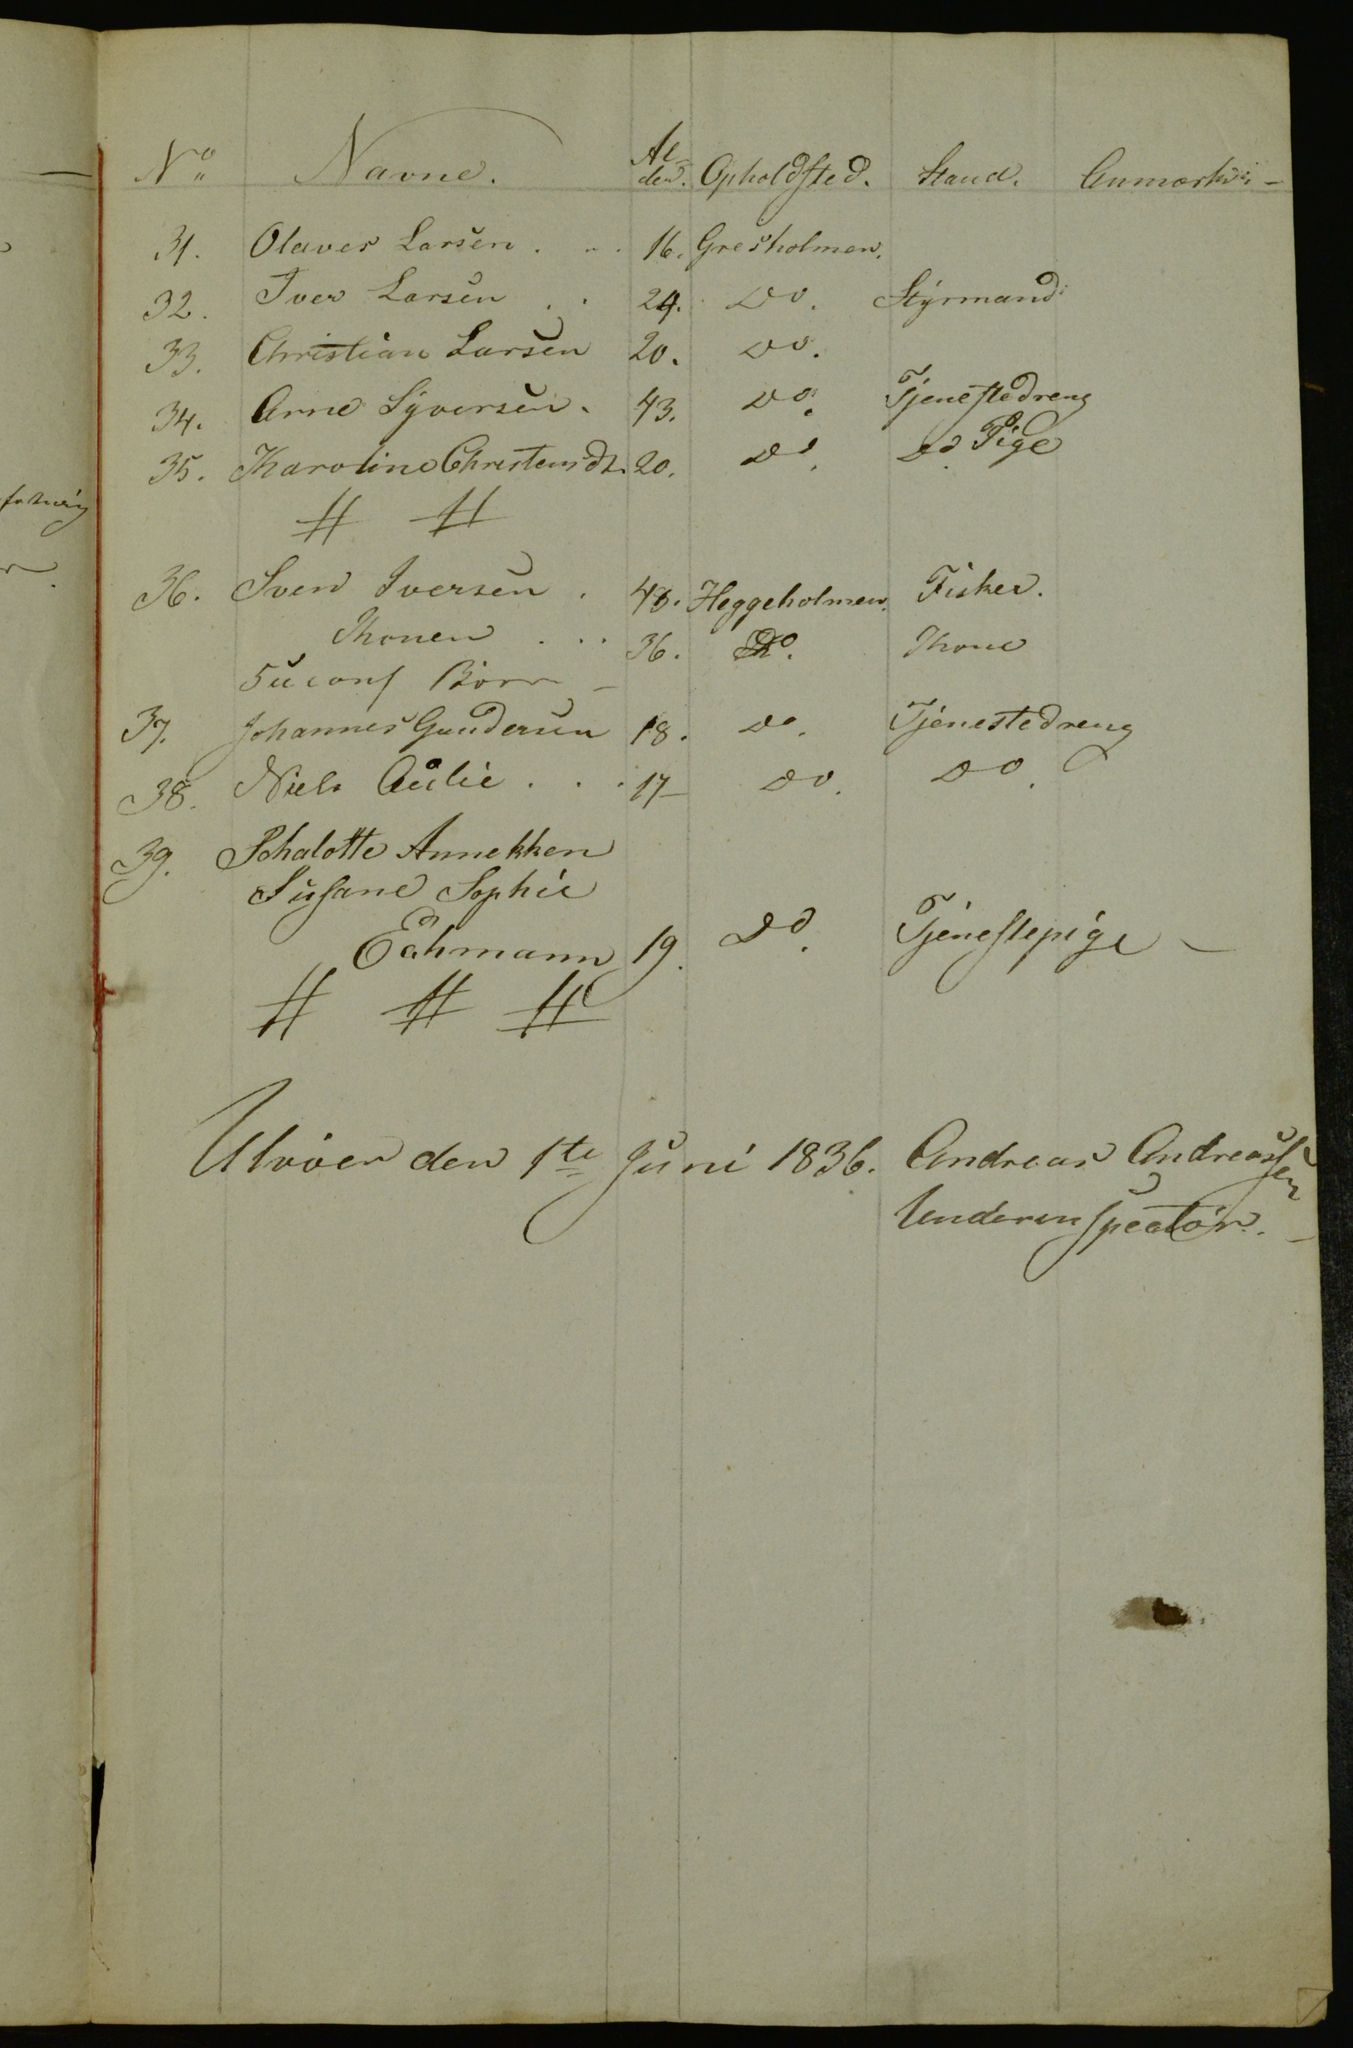 No Navne. Al-der. Opholdsted. Stand. Anmærkn:
31. Olaves Larsen . . . 16. Gresholmen.
32. Iver Larsen . . 24. Do. Styrmand
33. Christian Larsen 20. Do.
34. Arne Syversen. 43. Do. Tjenestedreng
35. Karoline Christensdt. 20. Do. Do Pige
# #
36. Sven Iversen . 48. Heggeholmen. Fisker.
Konen . . . 36. Do. Kone
5 uconf Børn –
37. Johannes Gundersen 18. Do. Tjenestedreng
38. Niels Aulie . . . 17– Do. Do.
39. Schalotte Annekken
Susane Sophie
Eckmann 19. Do. Tjenestepige –
# # #
Ulvøen den 1te Juni 1836. Andreas Andreassen
Underinspectør. –